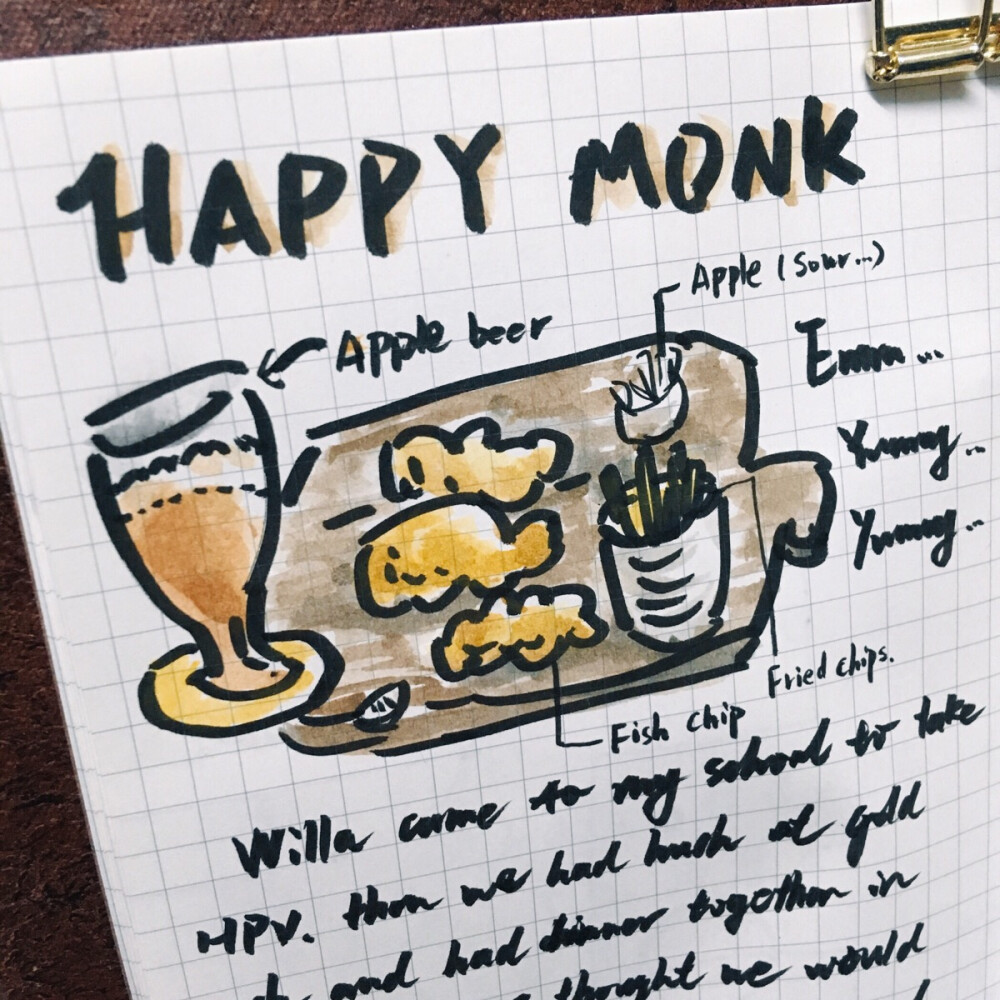 HAPPY MONK
Apple (Sour...)
Apple beer
Emm...
Yummy..
Yummy..
Fried chips.
Fish chip
Willa came to my school to take
HPV. then we had lunch at gold
and had dinner together in
thought we would